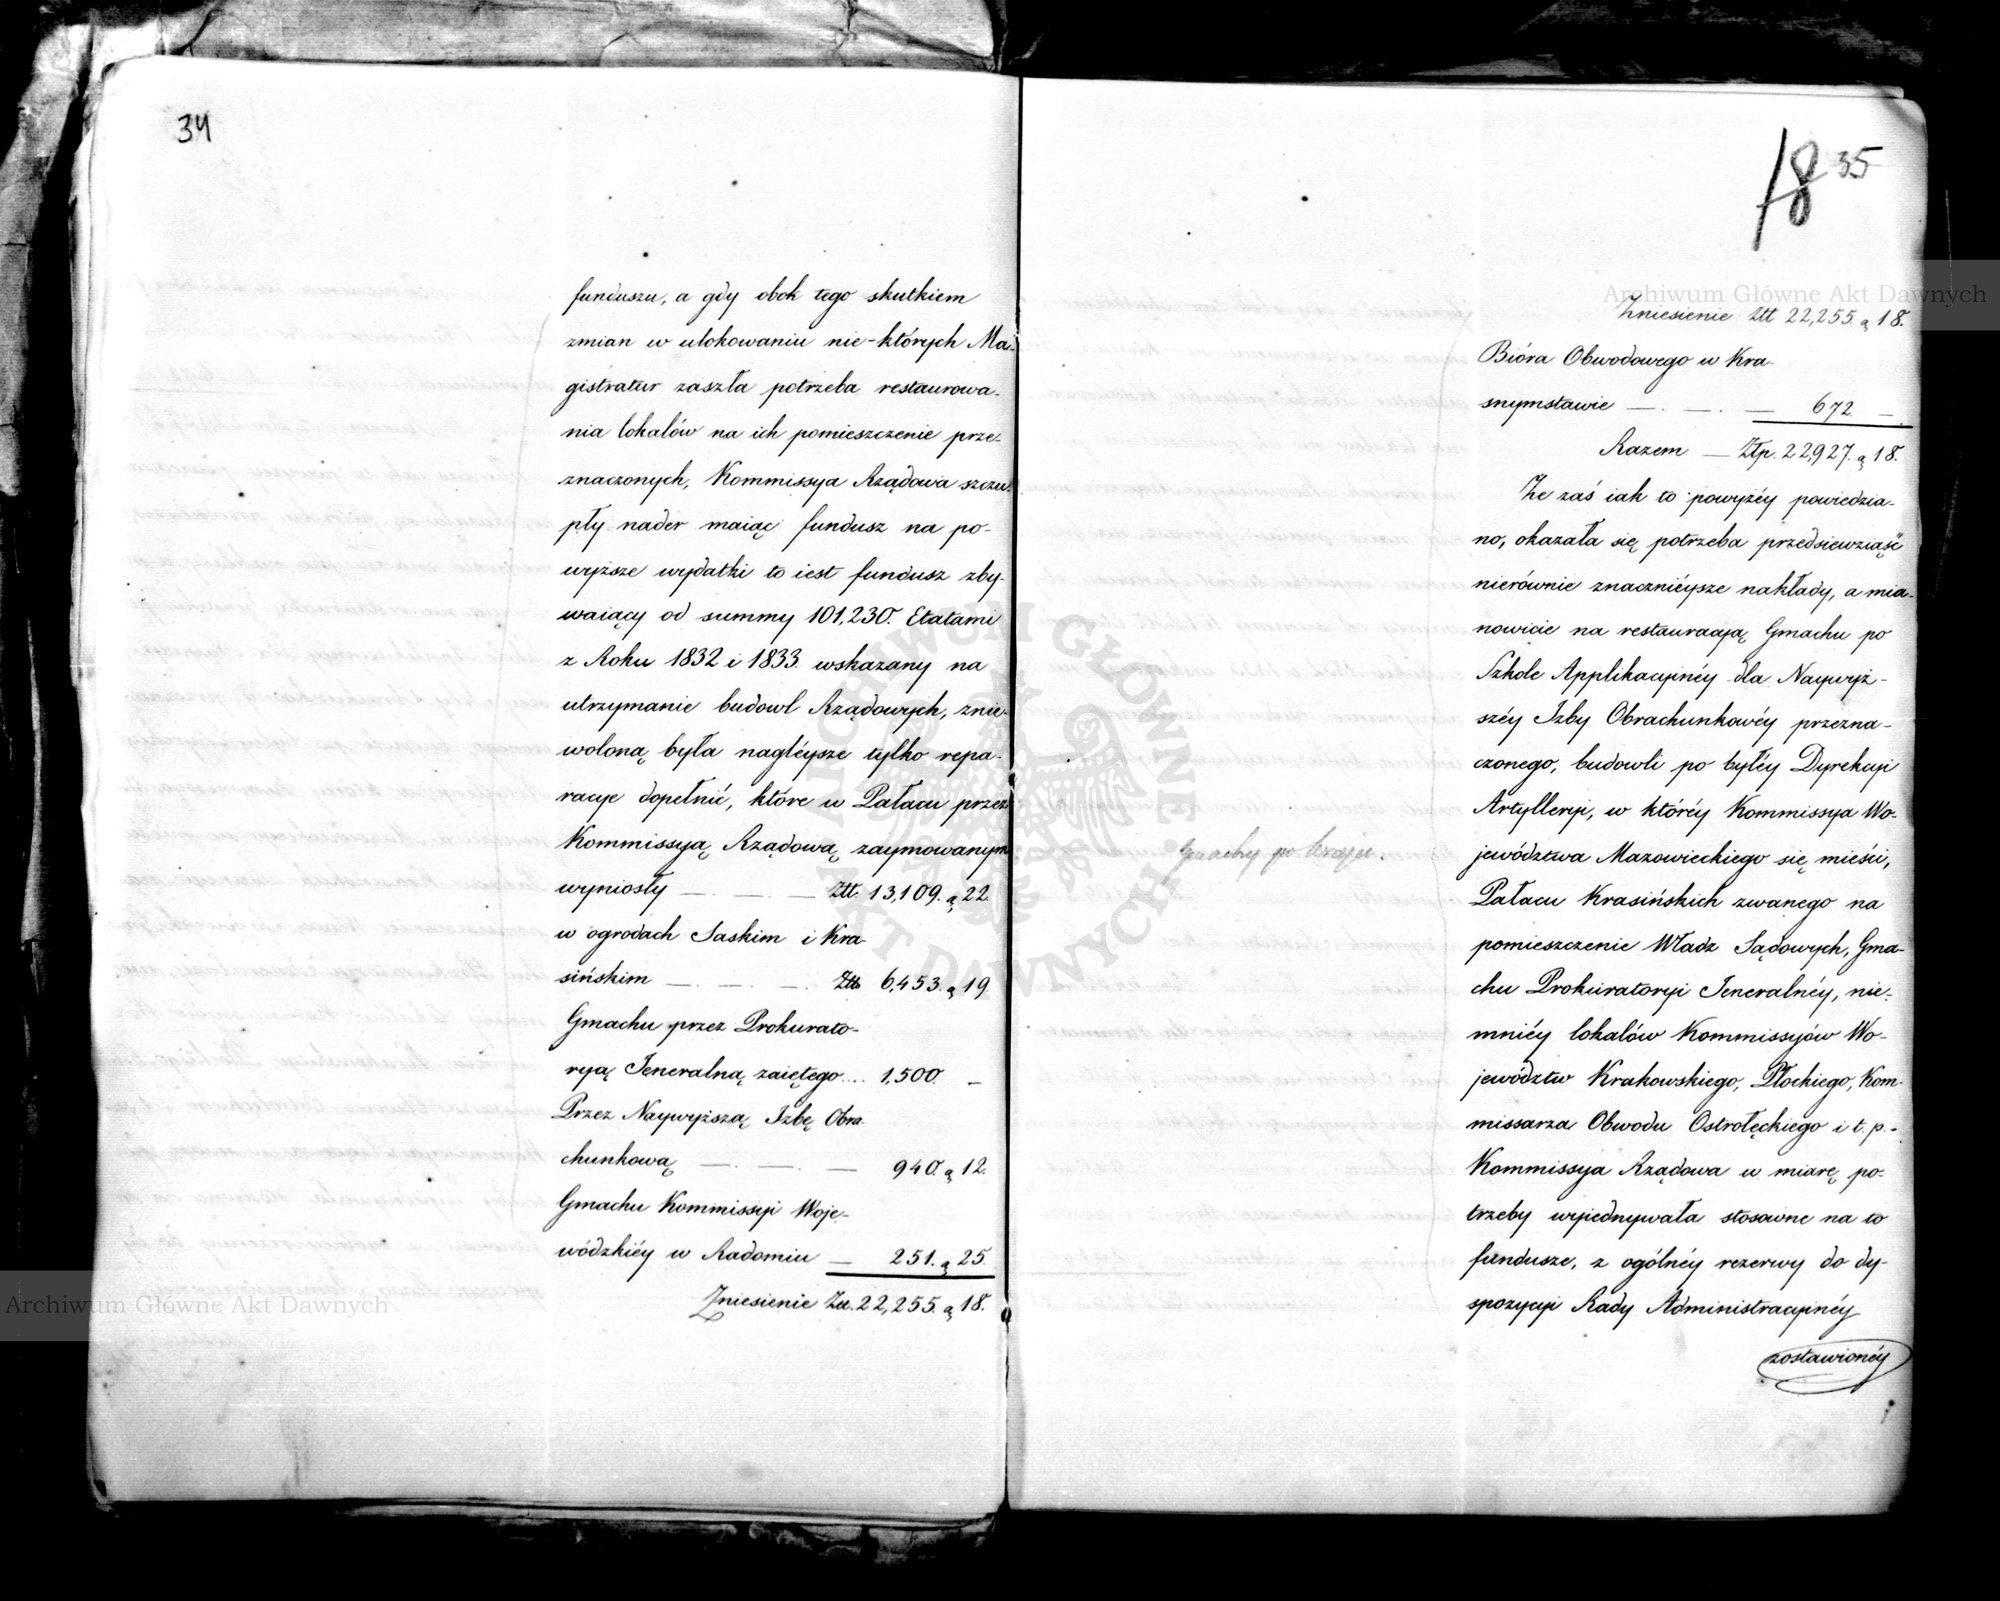 34
funduszu, a gdy obok tego skutkiem
zmian w ulokowaniu nie-których Ma-
gistratur zaszła potrzeba restaurowa-
nia lokalów na ich pomieszczenie prze-
znaczonych, Kommissya Rządowa szczu-
pły nader maiąc fundusz na po-
wyższe wydatki to iest fundusz zby-
waiący od summy 101,230. Etatami
z Roku 1832 i 1833. wskazany na
utrzymanie budowl Rządowych, znie-
woloną była nagléysze tylko repa-
racye dopełnić, które w Pałacu przez
Kommissyą Rządową zaymowanym
wyniosły — — — Złł. 13,109. g 22.
w ogrodach Saskim i Kra-
sińskim — — — Złł. 6,453. g 19.
Gmachu przez Prokurato-
ryą Jeneralną zaiętego.... 1,500. —
Przez Naywyższą Izbę Obra-
chunkową — — — 940. g 12.
Gmachu Kommissyi Woje-
wódzkiéy w Radomiu — 251. g 25.
Zniesienie Złł. 22,255. g 18.
18 35
Zniesienie Złł 22,255. g 18.
Bióra Obwodowego w Kra-
snymstawie — — — 672. —
Razem — Złp. 22,927. g 18.
Że zaś iak to powyżéy powiedzia-
no, okazała się potrzeba przedsiewziąść
nierównie znacznićysze nakłady, a mia-
nowicie na restauracyą Gmachu po
Szkole Applikacyinéy dla Naywyż-
széy Izby Obrachunkowéy przezna-
czonego, budowli po byłéy Dyrekcyi
Artylleryi, w któréy Kommissya Wo-
jewództwa Mazowieckiego się mieści,
Pałacu Krasińskich zwanego na
pomieszczenie Władz Sądowych, Gma-
chu Prokuratoryi Jeneralnéy, nie-
mniéy lokalów Kommissyjów Wo-
jewództw Krakowskiego, Płockiego, Kom-
missarza Obwodu Ostrołęckiego i t. p.-
Kommissya Rządowa w miarę po-
trzeby wyiednywała stosowne na to
fundusze, z ogólnéy rezerwy do dy-
spozycyi Rady Administracyinéy
zostawionéy
Gmachy po kraju.
Archiwum Główne Akt Dawnych
Archiwum Główne Akt Dawnych
ARCHIWUM GŁÓWNE AKT DAWNYCH